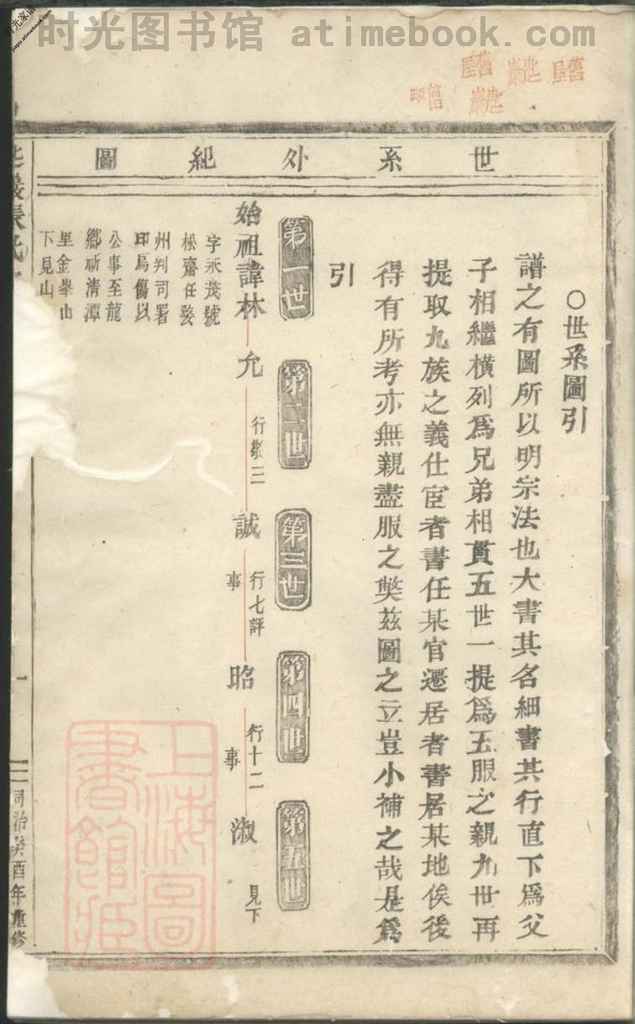 时光图书馆 atimebook.com
世系外紀圖
○世系圖引
譜之有圖所以明宗法也大書其名細書其行直下爲父
子相繼橫列爲兄弟相貫五世一提爲五服之親九世再
提取九族之義仕宦者書任某官遷居者書居某地俟後
得有所考亦無親盡服之獘茲圖之立豈小補之哉是爲
引
第一世
第二世
第三世
第四世
第五世
始祖諱林
允
行敬三
誠
行七評
事
昭
行十二
事
淑
見下
字永茂號
松齋任婺
州判司署
印烏傷以
公事至龍
鄉
清潭
里金
山
下見山
張氏
一
同治癸酉年重修
上海圖
書館藏